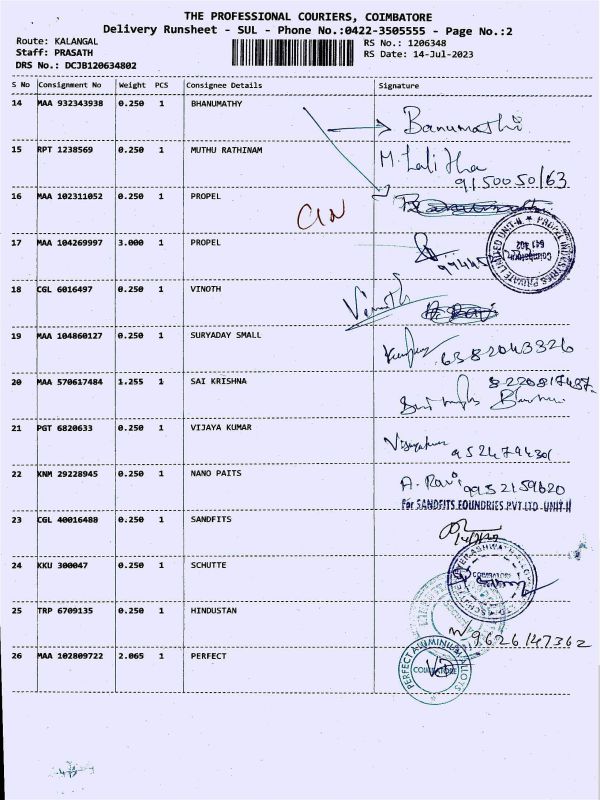 THE PROFESSIONAL COURIERS, COIMBATORE
Delivery Runsheet - SUL - Phone No.:0422-3505555 - Page No.:2
Route: KALANGAL
RS No.: 1206348
Staff: PRASATH
RS Date: 14-Jul-2023
DRS No.: DCJB120634802
S No Consignment No Weight PCS Consignee Details Signature
14 MAA 932343938 0.250 1 BHANUMATHY Banumathi
15 RPT 1238569 0.250 1 MUTHU RATHINAM M. Lalitha
9150050163
16 MAA 102311052 0.250 1 PROPEL
17 MAA 104269997 3.000 1 PROPEL
PROPEL INDUSTRIES PRIVATE LIMITED UNIT-II
Coimbatore
641 402
18 CGL 6016497 0.250 1 VINOTH Vinoth
19 MAA 104860127 0.250 1 SURYADAY SMALL 6382043326
20 MAA 570617484 1.255 1 SAI KRISHNA 8220817487
21 PGT 6820633 0.250 1 VIJAYA KUMAR Vijayakumar
9524794301
22 KNM 29228945 0.250 1 NANO PAITS A. Ravi 9952159620
For SANDFITS FOUNDRIES PVT LTD -UNIT-II
23 CGL 40016488 0.250 1 SANDFITS
24 KKU 300047 0.250 1 SCHUTTE
COIMBATORE
25 TRP 6709135 0.250 1 HINDUSTAN
9626147362
26 MAA 102809722 2.065 1 PERFECT
PERFECT ALUMINIUM ALLOYS
COIMBATORE